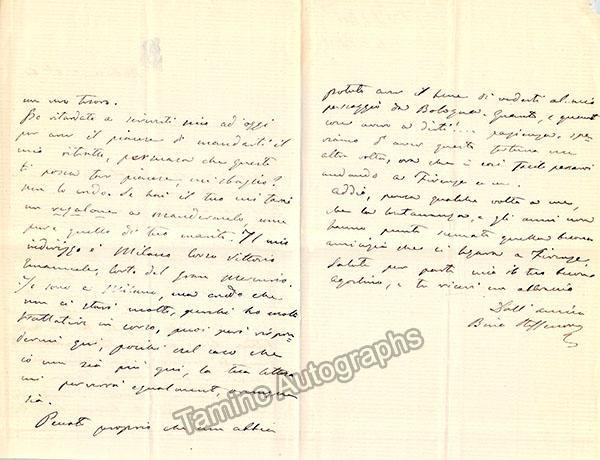 un vero tesoro.
Ho ritardato a scriverti sino ad'oggi
per aver il piacere di mandarti il
mio ritratto, persuasa che questo
ti possa far piacere, mi sbaglio?
non lo credo. Se hai il tuo mi farai
un regalone a mandarmelo, come
pure quello di tuo marito. Il mio
indirizzo è Milano Corso Vittorio
Emanuele, Corte del Gran Mercurio.
Io sono a Milano, ma credo che
non ci starò molto, perchè ho molte
trattative in corso, puoi però rispon
dermi qui, poichè nel caso che
io non sia più qui, la tua lettera
mi perverrà egualmente, ovunque
sia.
Peccato proprio che non abbia
potuto aver il bene di vederti al mio
passaggio da Bologna. Quante, e quante
cose avevo a dirti!... pazienza, spe
riamo di aver questa fortuna una
altra volta, ora che è così facile passarvi
andando a Firenze
Addio, pensa qualche volta a me,
che la lontananza, e gli anni non
hanno punto scemato quella buona
amicizia che ci legava a Firenze,
Saluta per parte mia il tuo buon
Agostino, e tu ricevi un abbraccio
Dall' amica
Bina Steffenone
Tamino Autographs